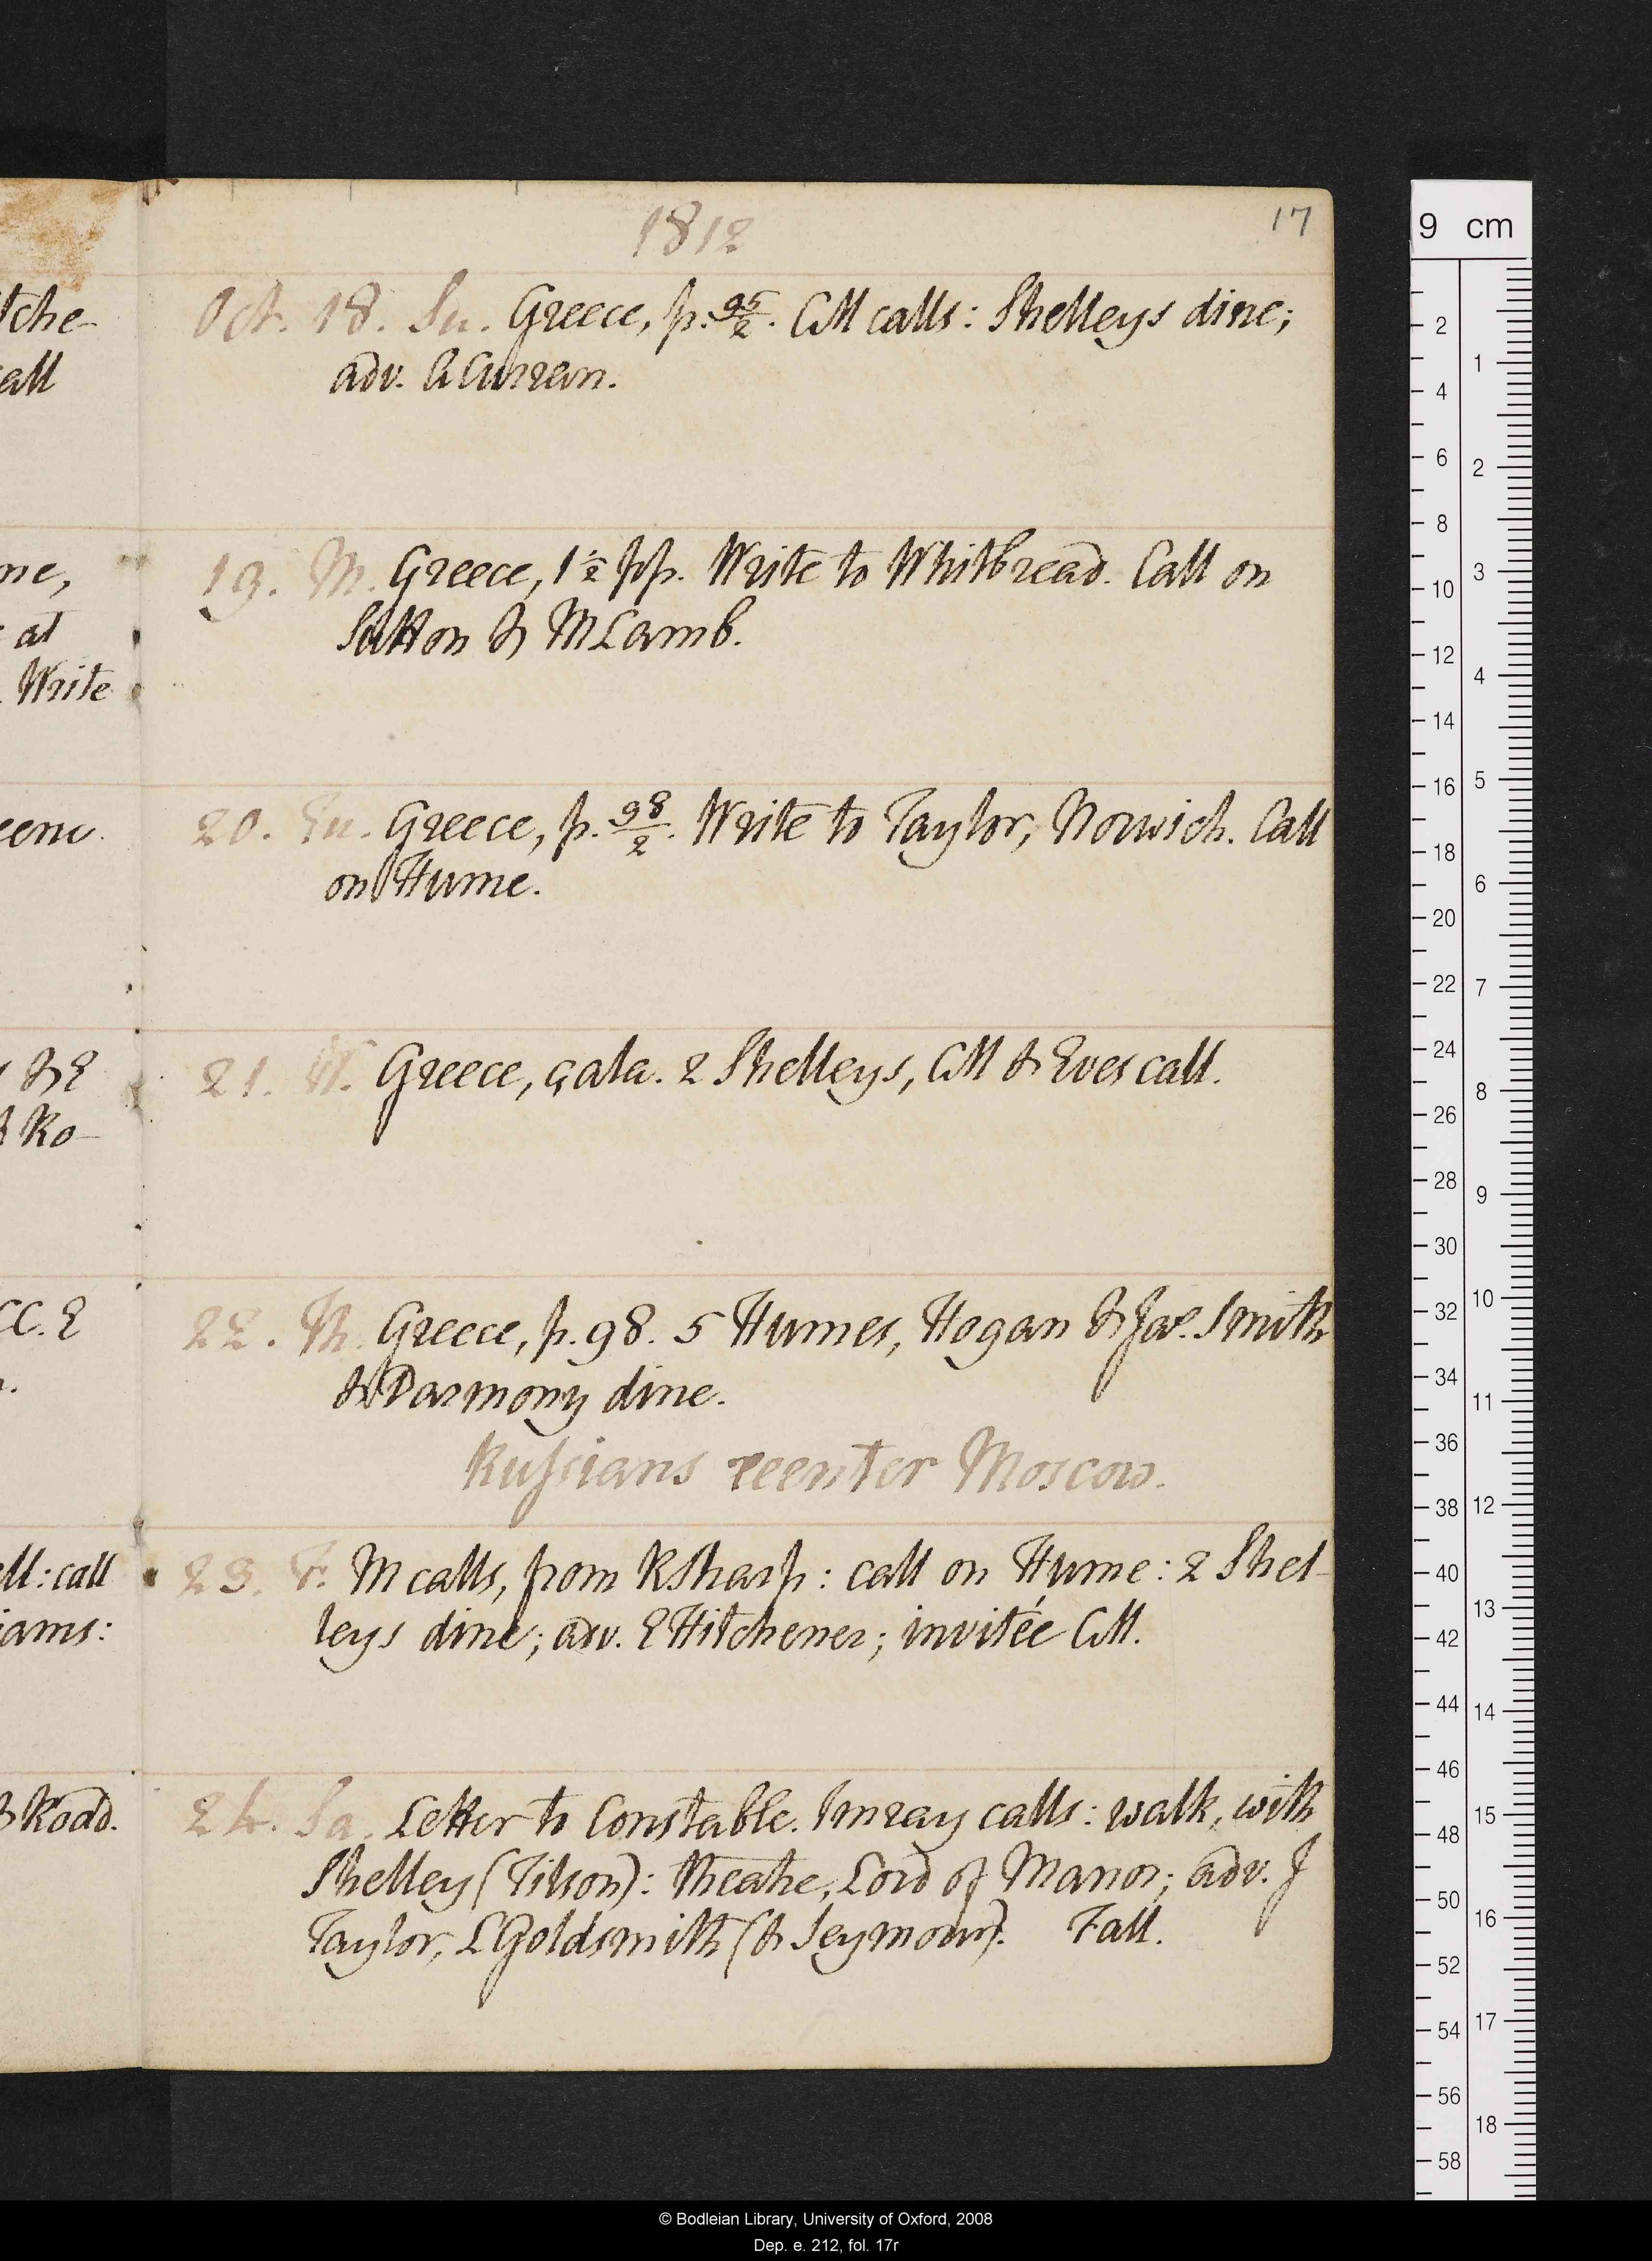 1812
17
Oct. 18. Su. Greece, p. 95/2. CM calls: Shelleys dine;
adv. A Curran.
19. M. Greece, 1½ pp. Write to Whitbread. Call on
Sutton & M Lamb.
20. Tu. Greece, p. 98/2. Write to Taylor, Norwich. Call
on Hume.
21. W. Greece, çala. 2 Shelleys, CM & Eves call.
22. Th. Greece, p. 98. 5 Humes, Hogan & Jas. Smith
& Darmony dine.
Russians reenter Moscow.
23. F. M calls, from R Sharp: call on Hume: 2 Shel-
leys dine; adv. E Hitchener; invitée CM.
24. Sa. Letter to Constable. Imray calls: walk, with
Shelley (Tilson): theatre, Lord of Manor; adv. J
Taylor, L Goldsmith (& Seymour). Fall.
tche-
all
me,
at
Write
& E
& Ro-
CC. E
ll: call
iams:
& Road.
9 cm
2
4
6
8
10
12
14
16
18
20
22
24
26
28
30
32
34
36
38
40
42
44
46
48
50
52
54
56
58
1
2
3
4
5
6
7
8
9
10
11
12
13
14
15
16
17
18
© Bodleian Library, University of Oxford, 2008
Dep. e. 212, fol. 17r